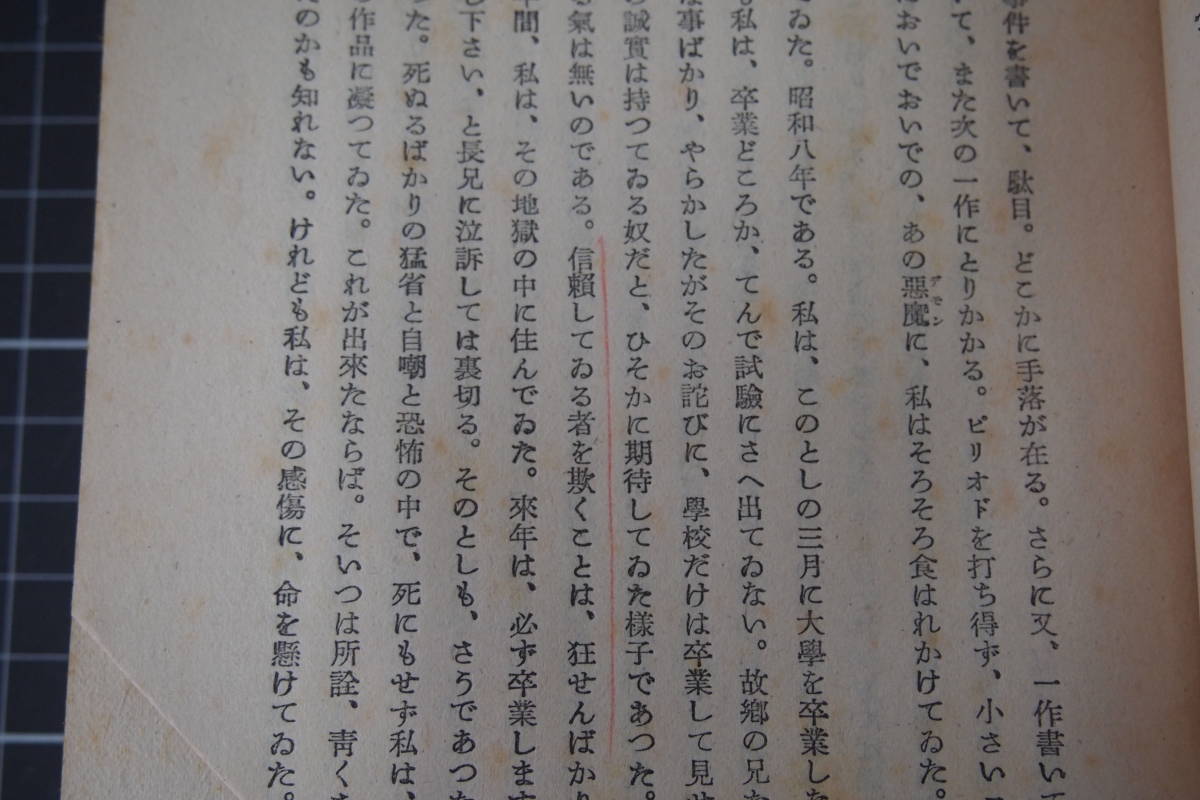 事件を書いて、駄目。どこかに手落が在る。さらに又、一作書いて
いて、また次の一作にとりかかる。ピリオドを打ち得ず、小さいコ
おいでおいでの、あの惡魔に、私はそろそろ食はれかけてゐた。
デモン
てゐた。昭和八年である。私は、このとしの三月に大學を卒業した
。私は、卒業どころか、てんで試驗にさへ出てゐない。故郷の兄
な事ばかり、やらかしたがそのお詫びに、學校だけは卒業して見せ
の誠實は持つてゐる奴だと、ひそかに期待してゐた樣子であつた。
る氣は無いのである。信賴してゐる者を欺くことは、狂せんばかり
年間、私は、その地獄の中に住んでゐた。來年は、必ず卒業します
し下さい、と長兄に泣訴しては裏切る。そのとしも、さうであつた
った。死ぬるばかりの猛省と自嘲と恐怖の中で、死にもせず私は、
作品に凝つてゐた。これが出來たならば。そいつは所詮、靑くさ
たのかも知れない。けれども私は、その感傷に、命を懸けてゐた。